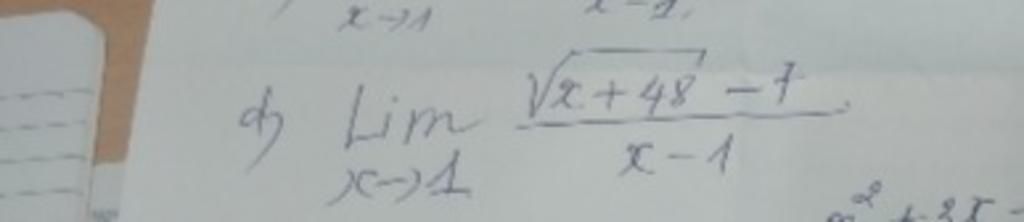 x→1
d) Lim x→1 (√(x+48) - 7) / (x - 1)